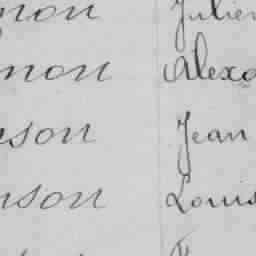 non Julien
non Alexa
son Jean
nson Louis